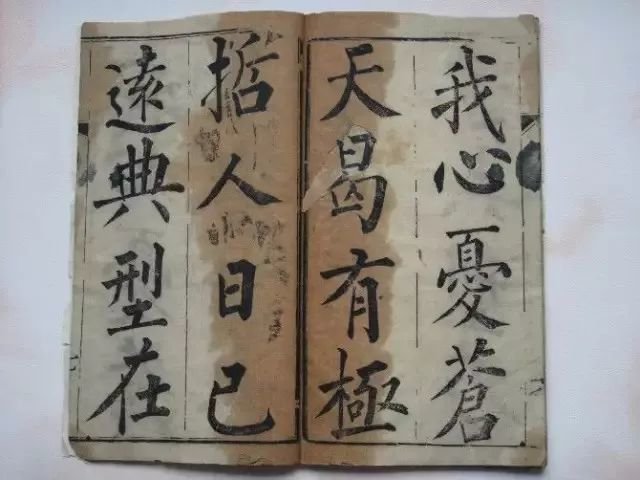 我心憂蒼
天曷有極
哲人日已
遠典型在